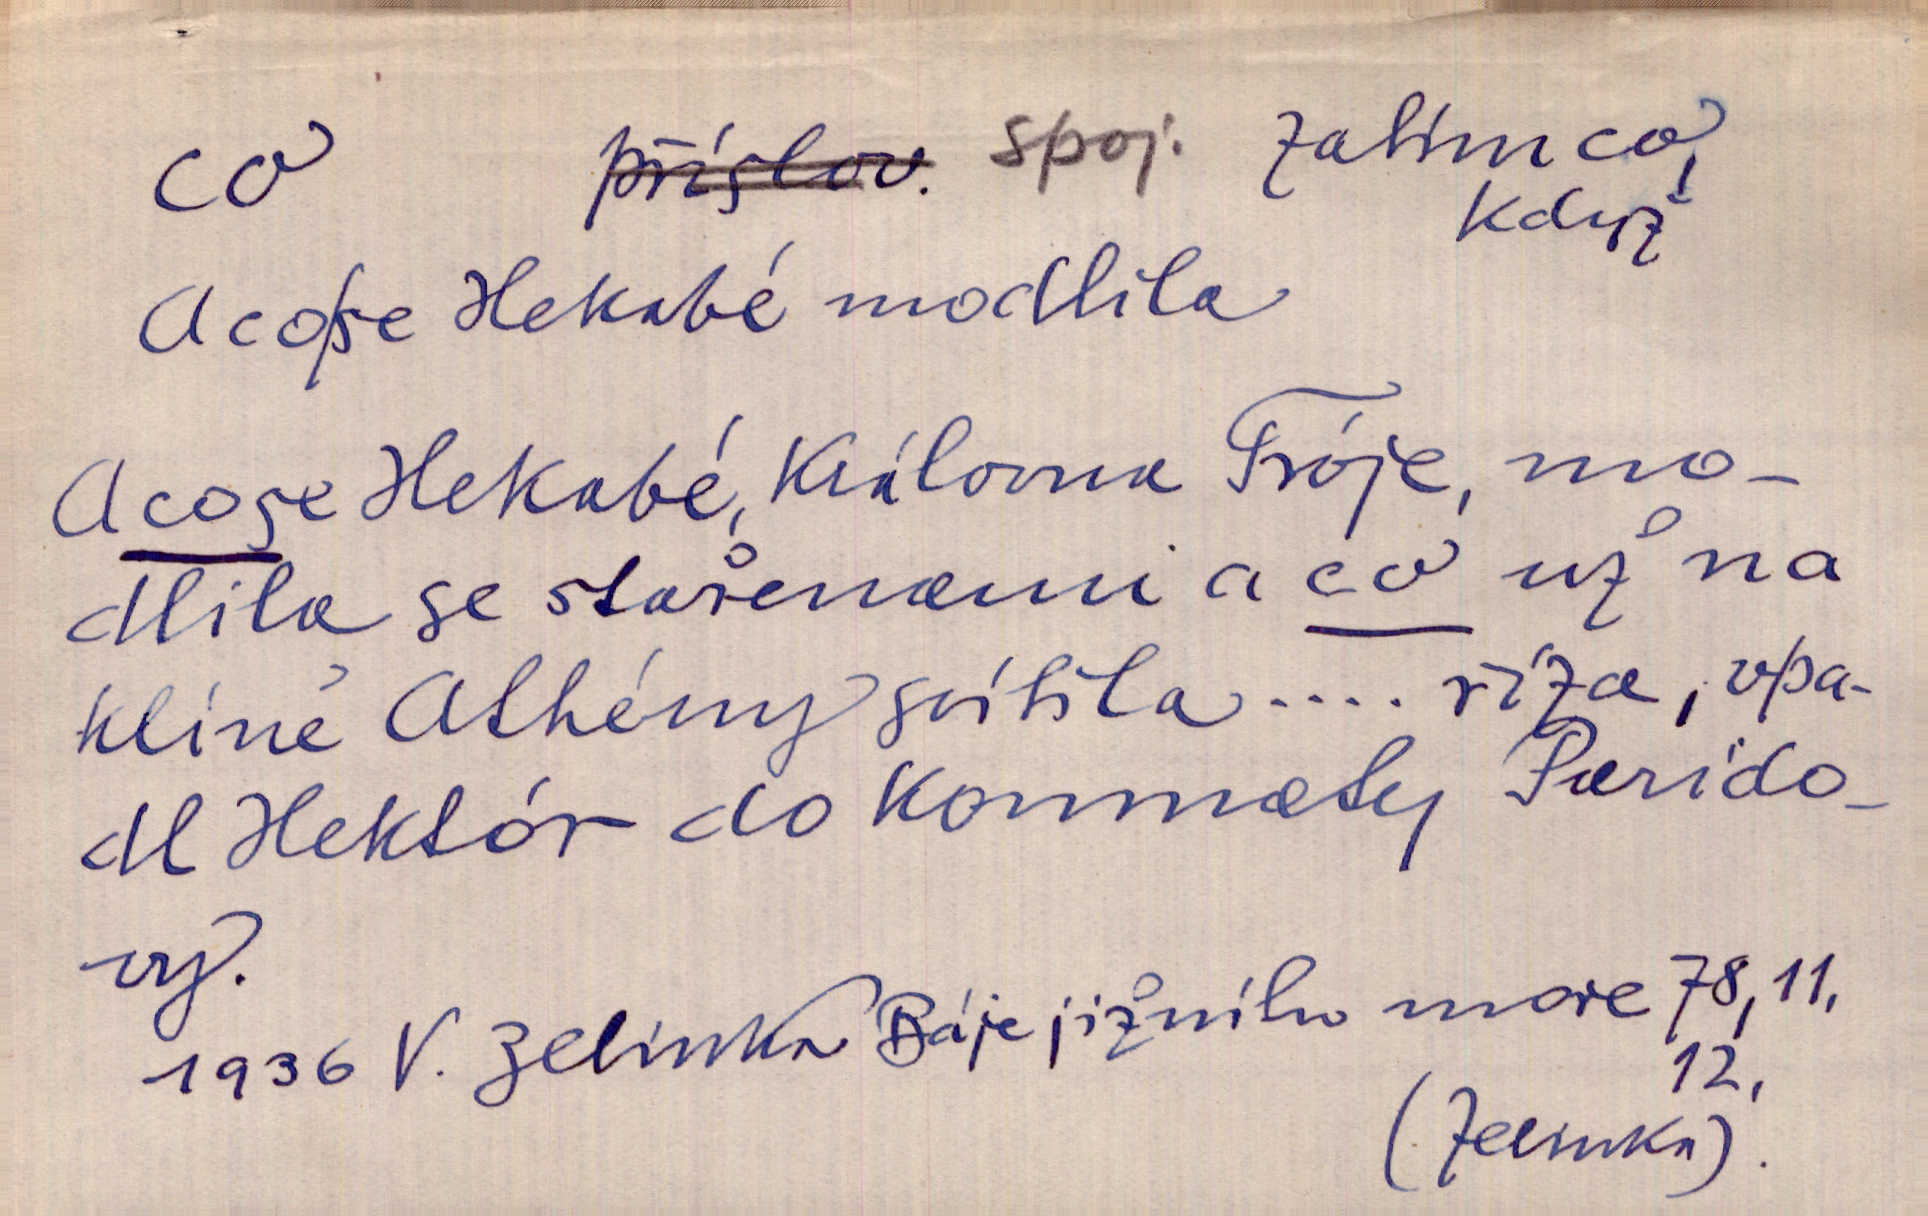 co příslov. spoj. zatímco,
když
A co|se Hekabé modlila
A co se Hekabé, královna Tróje, mo-
dlila se stařenami a co už na
klíně Athény svítila .... říza, vpa-
dl Hektór do komnaty Parido-
vy.
1936 V. Zelinka Báje jižního moře 78, 11,
12,
(Zelinka).